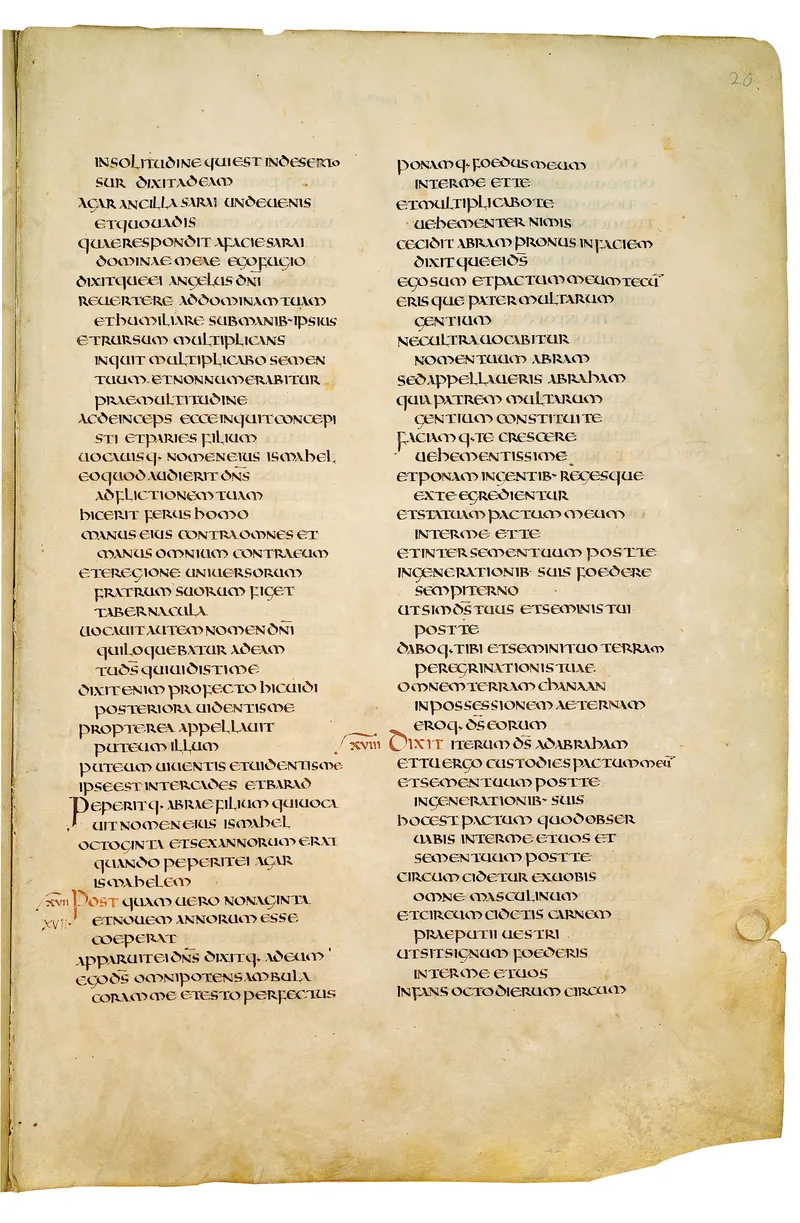 26.
INSOLITUDINE QUI EST INDESERTO
SUR DIXIT AD EAM
AGAR ANCILLA SARAI UNDE UENIS
ET QUO UADIS
QUAE RESPONDIT A FACIE SARAI
DOMINAE MEAE EGO FUGIO
DIXITQUE EI ANGELUS DN̄I
REUERTERE AD DOMINAM TUAM
ET HUMILIARE SUB MANIB· IPSIUS
ET RURSUM MULTIPLICANS
INQUIT MULTIPLICABO SEMEN
TUUM ET NON NUMERABITUR
PRAE MULTITUDINE
AC DEINCEPS ECCE INQUIT CONCEPI
STI ET PARIES FILIUM
UOCAUISQ· NOMEN EIUS ISMAHEL
EO QUOD AUDIERIT DN̄S
ADFLICTIONEM TUAM
HIC ERIT FERUS HOMO
MANUS EIUS CONTRA OMNES ET
MANUS OMNIUM CONTRA EUM
ET E REGIONE UNIUERSORUM
FRATRUM SUORUM FIGET
TABERNACULA
UOCAUIT AUTEM NOMEN DN̄I
QUI LOQUEBATUR AD EAM
TU DS̄ QUI UIDISTI ME
DIXIT ENIM PROFECTO HIC UIDI
POSTERIORA UIDENTIS ME
PROPTEREA APPELLAUIT
PUTEUM ILLUM
PUTEUM UIUENTIS ET UIDENTIS ME
IPSE EST INTER CADES ET BARAD
PEPERITQ· ABRAE FILIUM QUI UOCA
UIT NOMEN EIUS ISMAHEL
OCTOGINTA ET SEX ANNORUM ERAT
QUANDO PEPERIT EI AGAR
ISMAHELEM
XVII POST QUAM UERO NONAGINTA
XVII ET NOUEM ANNORUM ESSE
COEPERAT
APPARUIT EI DN̄S DIXITQ· AD EUM
EGO DS̄ OMNIPOTENS AMBULA
CORAM ME ET ESTO PERFECTUS
PONAMQ· FOEDUS MEUM
INTER ME ET TE
ET MULTIPLICABO TE
UEHEMENTER NIMIS
CECIDIT ABRAM PRONUS IN FACIEM
DIXITQUE EI DS̄
EGO SUM ET PACTUM MEUM TECŪ
ERISQUE PATER MULTARUM
GENTIUM
NEC ULTRA UOCABITUR
NOMEN TUUM ABRAM
SED APPELLAUERIS ABRAHAM
QUIA PATREM MULTARUM
GENTIUM CONSTITUI TE
FACIAMQ· TE CRESCERE
UEHEMENTISSIME
ET PONAM IN GENTIB· REGESQUE
EX TE EGREDIENTUR
ET STATUAM PACTUM MEUM
INTER ME ET TE
ET INTER SEMEN TUUM POST TE
IN GENERATIONIB· SUIS FOEDERE
SEMPITERNO
UT SIM DS̄ TUUS ET SEMINIS TUI
POST TE
DABOQ· TIBI ET SEMINI TUO TERRAM
PEREGRINATIONIS TUAE
OMNEM TERRAM CHANAAN
IN POSSESSIONEM AETERNAM
EROQ· DS̄ EORUM
XVIII DIXIT ITERUM DS̄ AD ABRAHAM
ET TU ERGO CUSTODIES PACTUM MEŪ
ET SEMEN TUUM POST TE
IN GENERATIONIB· SUIS
HOC EST PACTUM QUOD OBSER
UABIS INTER ME ET UOS ET
SEMEN TUUM POST TE
CIRCUMCIDETUR EX UOBIS
OMNE MASCULINUM
ET CIRCUMCIDETIS CARNEM
PRAEPUTII UESTRI
UT SIT SIGNUM FOEDERIS
INTER ME ET UOS
INFANS OCTO DIERUM CIRCUM